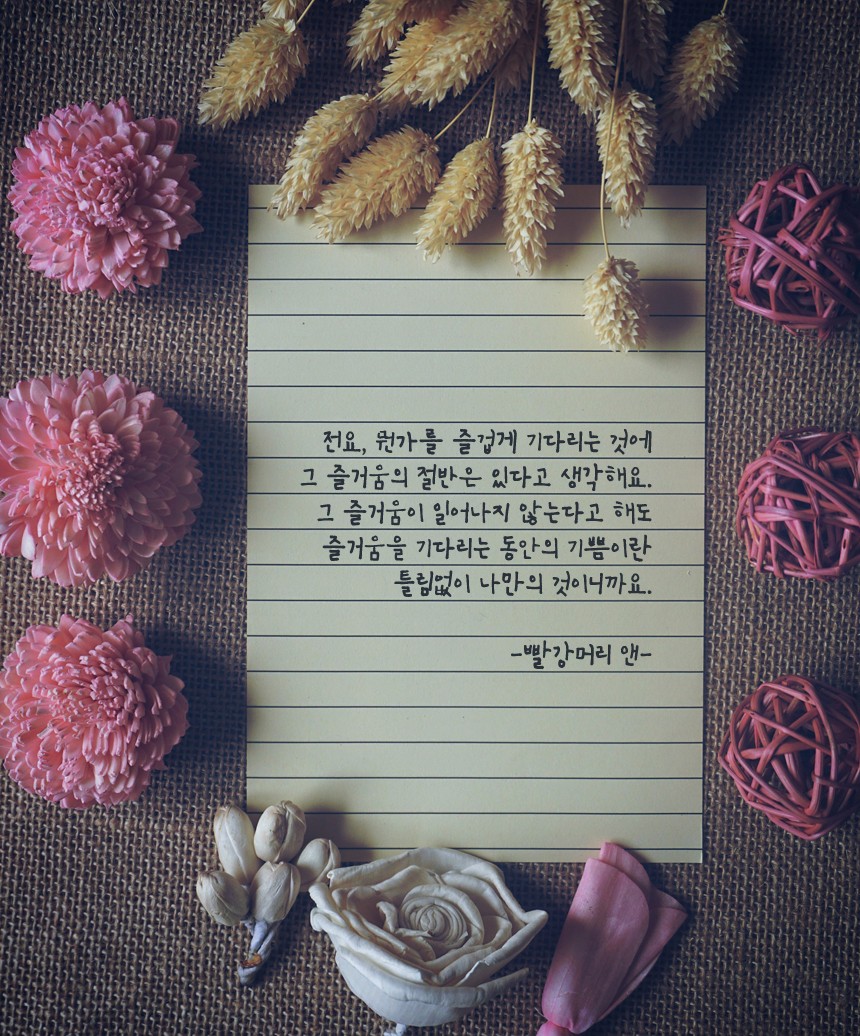 전요, 뭔가를 즐겁게 기다리는 것에
그 즐거움의 절반은 있다고 생각해요.
그 즐거움이 일어나지 않는다고 해도
즐거움을 기다리는 동안의 기쁨이란
틀림없이 나만의 것이니까요.
-빨강머리 앤-